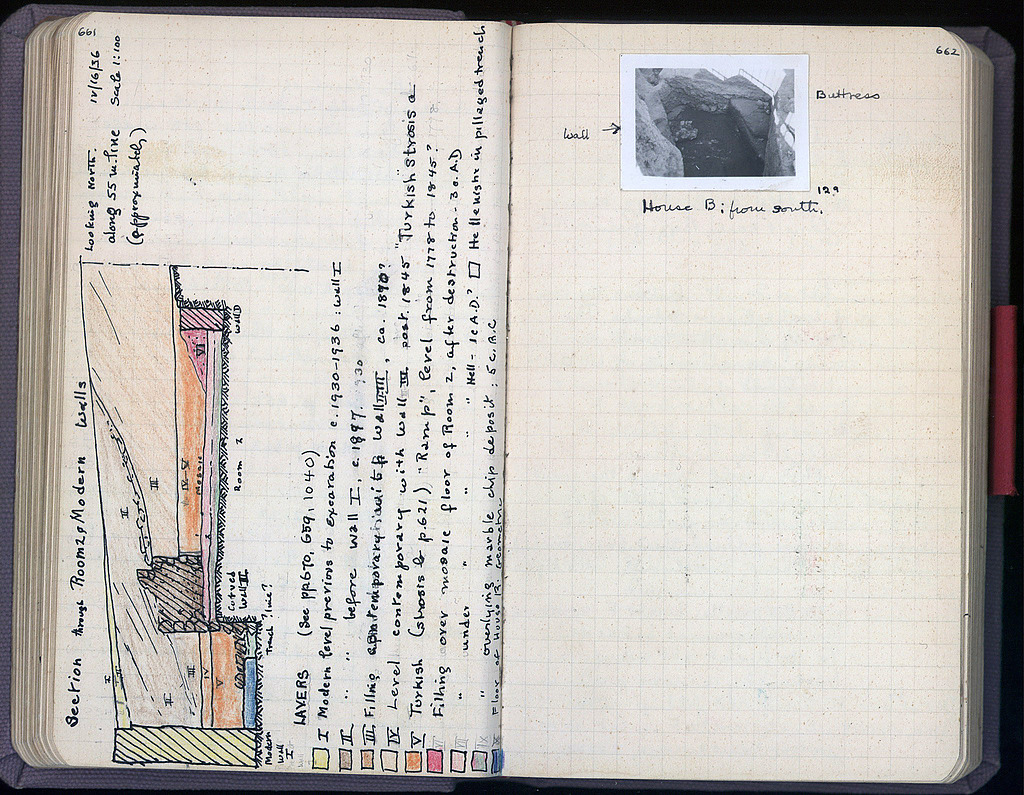 661
Section through Room 2 & Modern Walls
Looking North.
along 55 m. line
(approximately)
IV/16/36
Scale 1:100
I
II
II
III
II
III
IV
V
IV-V
Mosaic
VI
Room 2
Wall D
Cut end
Wall III
Trench line?
Modern
Wall
I
LAYERS (See pp. 670, 659, 1040)
I Modern level previous to Excavation c. 1930-1936 : Wall I
II " " before Wall I, c. 1897
III Filling, ca. 1890?
IV Level contemporary with Wall III, post 1845 "Turkish strosis a
V Turkish (strosis b p.621) "Ramp", level from 1778 to 1845?
VI Filling over mosaic floor of Room 2, after destruction - 3 c. A.D
VII " under " " " " Hell - 1 c A.D.? Hellenistic in pillaged trench
IX " overlying marble chip deposit : 5 c. B.C
X Floor of House B. Geometric
662
Wall →
Buttress
129
House B; from south.